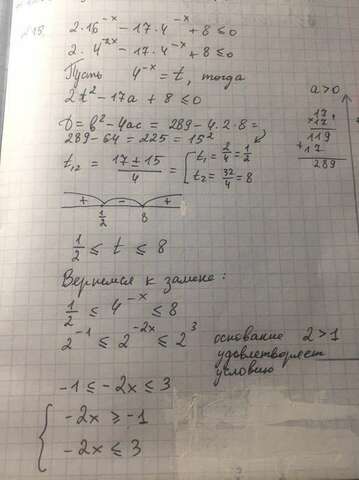 215.
2·16^{-x} - 17·4^{-x} + 8 ≤ 0
2·4^{-2x} - 17·4^{-x} + 8 ≤ 0
Пусть 4^{-x} = t, тогда
2t² - 17a + 8 ≤ 0
a > 0
D = b² - 4ac = 289 - 4·2·8 =
289 - 64 = 225 = 15²
17
×17
119
+17
289
t₁,₂ = (17 ± 15)/4 = [ t₁ = 2/4 = 1/2
t₂ = 32/4 = 8
+ - +
1/2 8
1/2 ≤ t ≤ 8
Вернемся к замене:
1/2 ≤ 4^{-x} ≤ 8
2^{-1} ≤ 2^{-2x} ≤ 2^{3}
основание 2>1
удовлетворяет
условию
-1 ≤ -2x ≤ 3
{ -2x ≥ -1
-2x ≤ 3